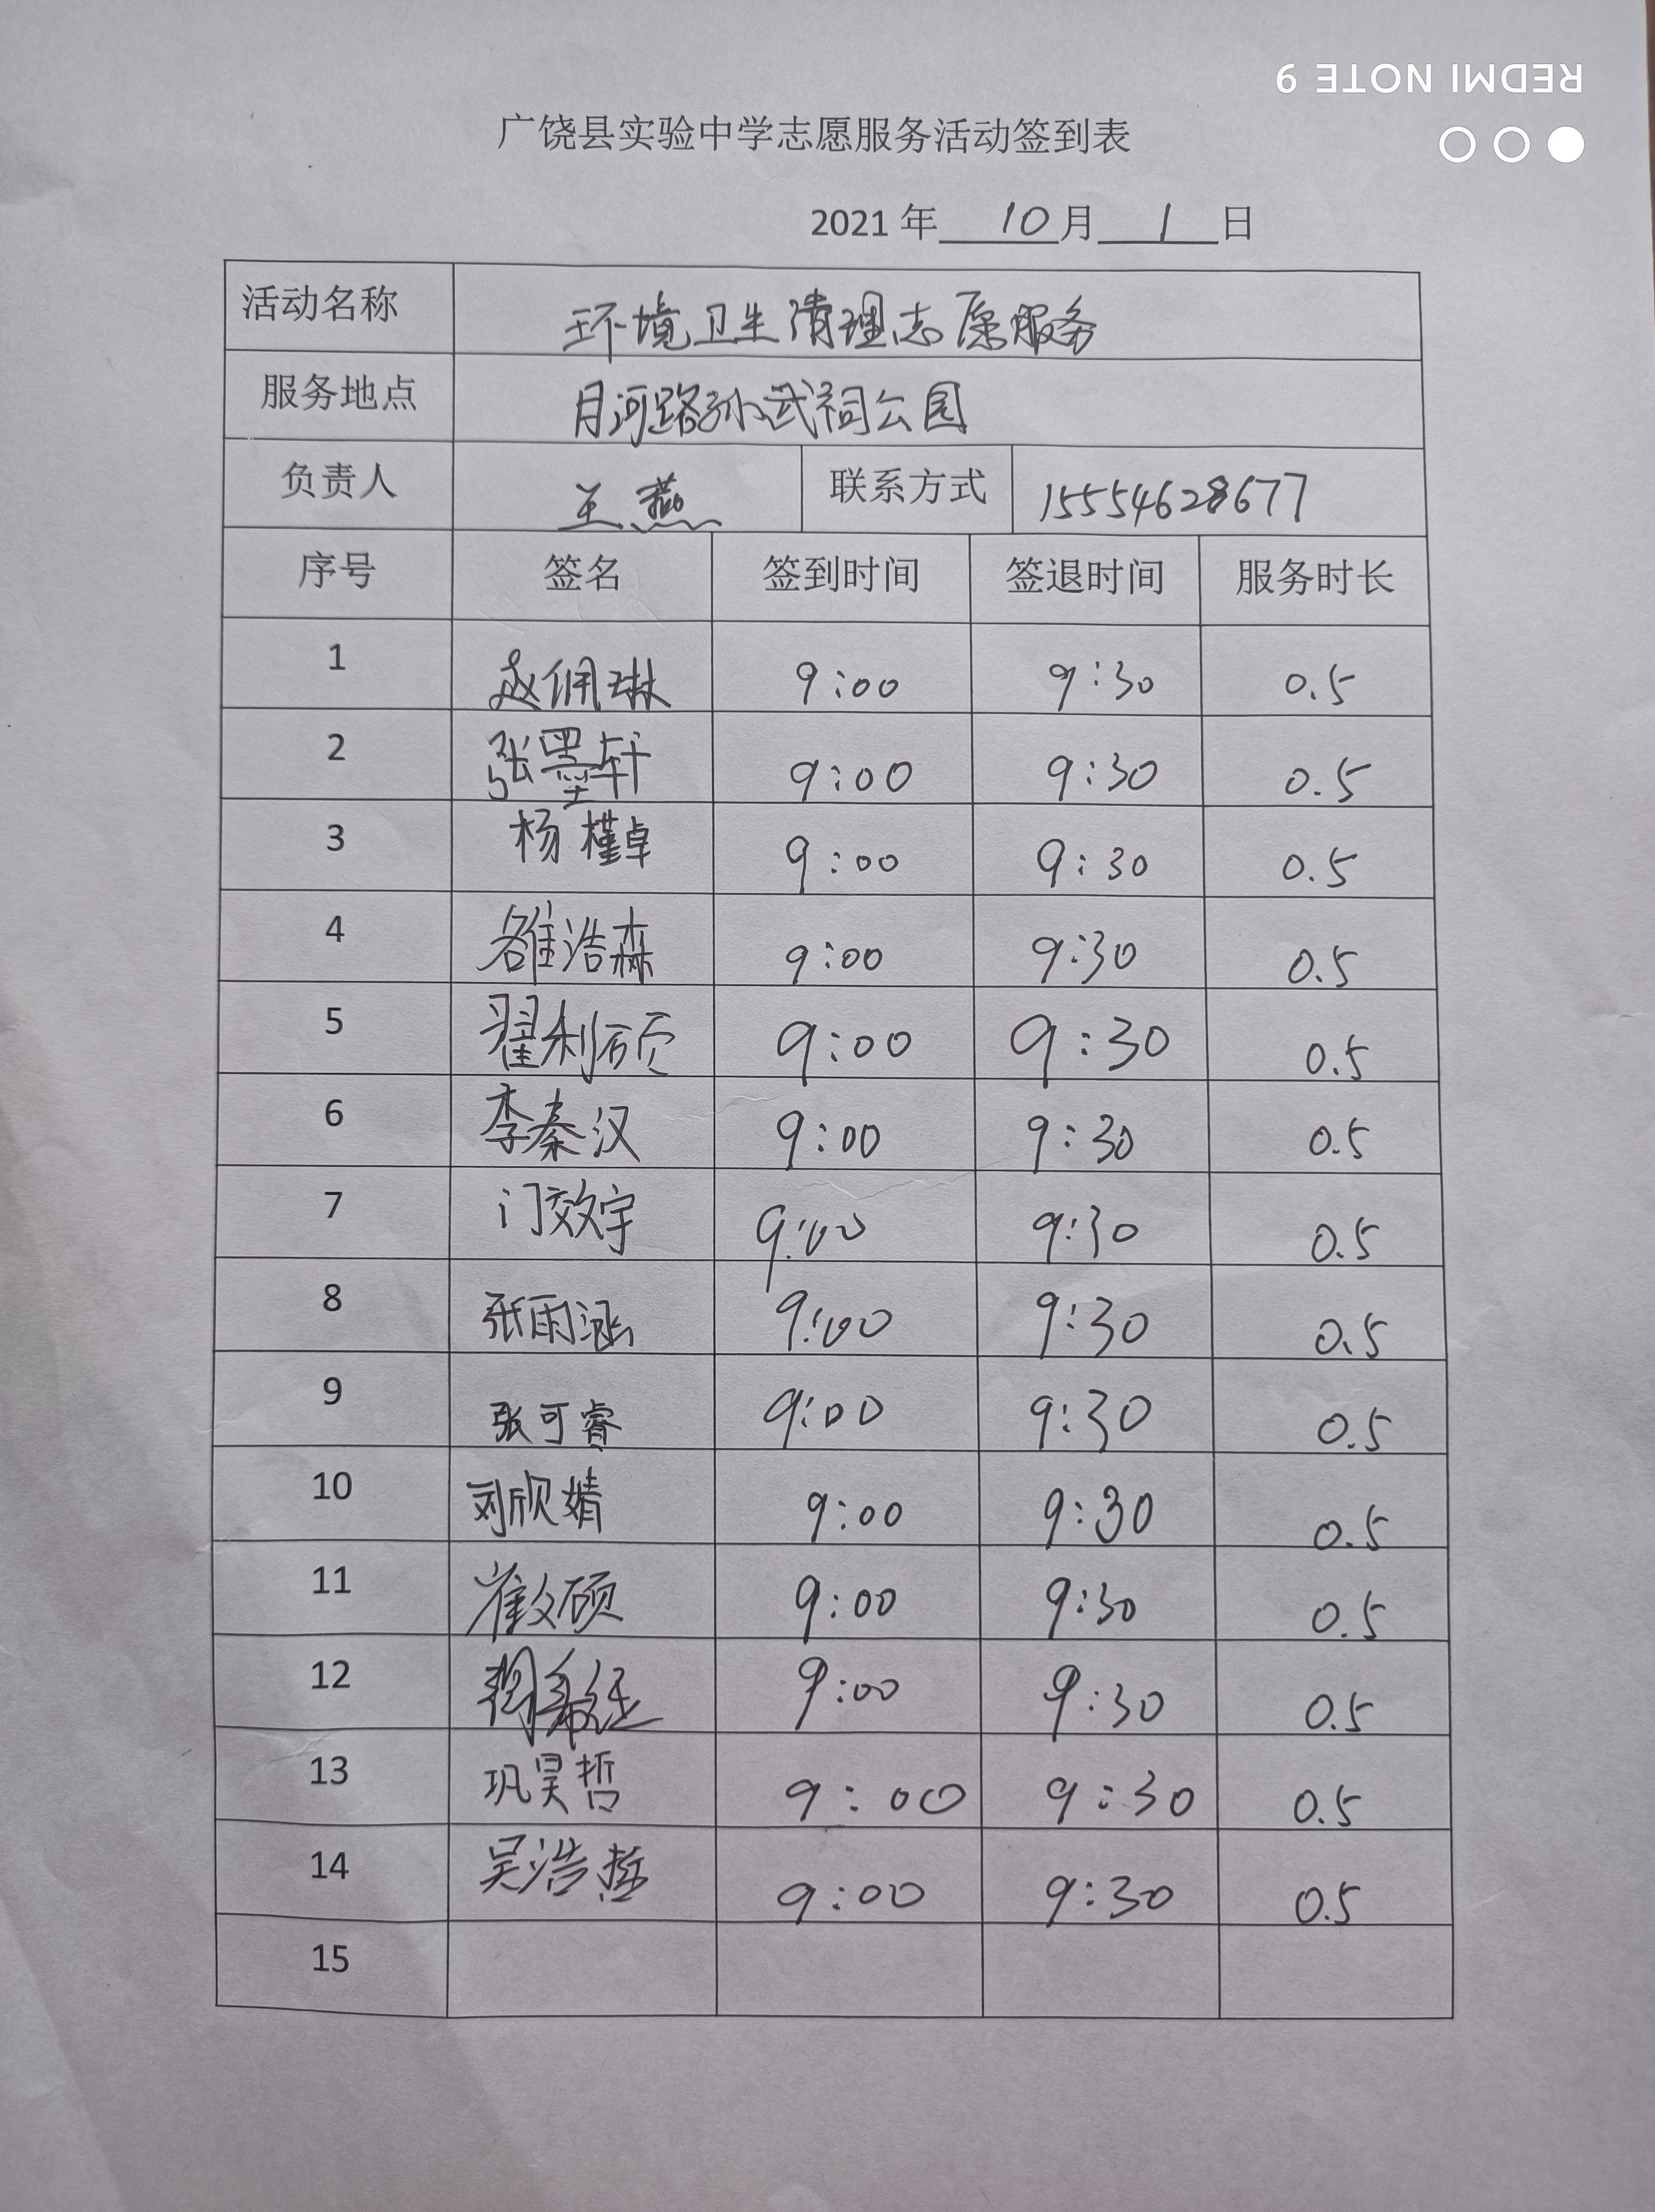 REDMI NOTE 9
广饶县实验中学志愿服务活动签到表
2021 年 10 月 1 日
活动名称 环境卫生清理志愿服务
服务地点 月河路孙武祠公园
负责人 王燕 联系方式 15554628677
序号 签名 签到时间 签退时间 服务时长
1 赵佩琳 9:00 9:30 0.5
2 张墨轩 9:00 9:30 0.5
3 杨槿卓 9:00 9:30 0.5
4 浩森 9:00 9:30 0.5
5 翟利硕 9:00 9:30 0.5
6 李秦汉 9:00 9:30 0.5
7 门效宇 9:00 9:30 0.5
8 张雨涵 9:00 9:30 0.5
9 张可睿 9:00 9:30 0.5
10 刘欣婧 9:00 9:30 0.5
11 崔文硕 9:00 9:30 0.5
12 9:00 9:30 0.5
13 巩昊哲 9:00 9:30 0.5
14 吴浩哲 9:00 9:30 0.5
15